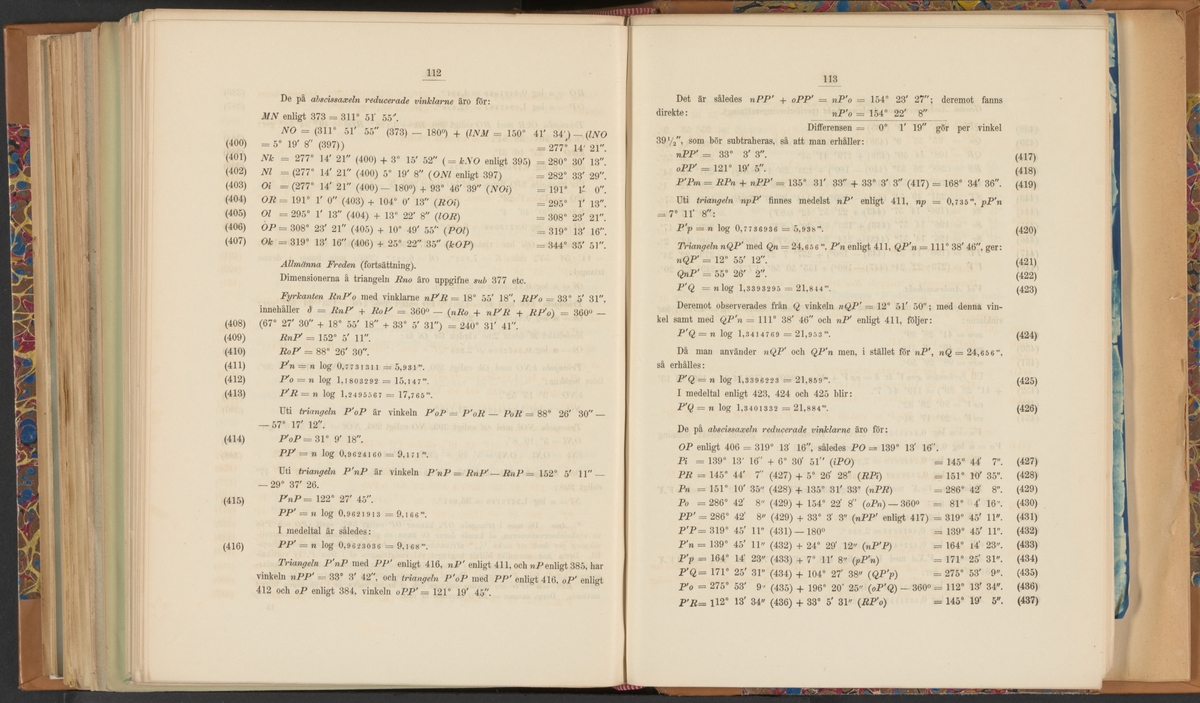 112
De på abscissaxeln reducerade vinklarne äro för:
MN enligt 373 = 311° 51′ 55″.
NO = (311° 51′ 55″ (373) — 180°) + (lNM = 150° 41′ 34′) — (lNO
(400) = 5° 19′ 8″ (397)) = 277° 14′ 21″.
(401) Nk = 277° 14′ 21″ (400) + 3° 15′ 52″ (= kNO enligt 395) = 280° 30′ 13″.
(402) Nl = (277° 14′ 21″ (400) 5° 19′ 8″ (ONl enligt 397) = 282° 33′ 29″.
(403) Oi = (277° 14′ 21″ (400) — 180°) + 93° 46′ 39″ (NOi) = 191° 1′ 0″.
(404) OR = 191° 1′ 0″ (403) + 104° 0′ 13″ (ROi) = 295° 1′ 13″.
(405) Ol = 295° 1′ 13″ (404) + 13° 22′ 8″ (lOR) = 308° 23′ 21″.
(406) OP = 308° 23′ 21″ (405) + 10° 49′ 55″ (POl) = 319° 13′ 16″.
(407) Ok = 319° 13′ 16″ (406) + 25° 22′ 35″ (kOP) = 344° 35′ 51″.
Allmänna Freden (fortsättning).
Dimensionerna å triangeln Rno äro uppgifne sub 377 etc.
Fyrkanten RnP′o med vinklarne nP′R = 18° 55′ 18″, RP′o = 33° 5′ 31″,
innehåller ∂ = RnP′ + RoP′ = 360° — (nRo + nP′R + RP′o) = 360° —
(408) (67° 27′ 30″ + 18° 55′ 18″ + 33° 5′ 31″) = 240° 31′ 41″.
(409) RnP′ = 152° 5′ 11″.
(410) RoP′ = 88° 26′ 30″.
(411) P′n = n log 0,7731311 = 5,931m.
(412) P′o = n log 1,1803292 = 15,147m.
(413) P′R = n log 1,2495567 = 17,765m.
Uti triangeln P′oP är vinkeln P′oP = P′oR — PoR = 88° 26′ 30″ —
— 57° 17′ 12″.
(414) P′oP = 31° 9′ 18″.
PP′ = n log 0,9624160 = 9,171m.
Uti triangeln P′nP är vinkeln P′nP = RnP′ — RnP = 152° 5′ 11″ —
— 29° 37′ 26.
(415) P′nP = 122° 27′ 45″.
PP′ = n log 0,9621913 = 9,166m.
I medeltal är således:
(416) PP′ = n log 0,9623036 = 9,168m.
Triangeln P′nP med PP′ enligt 416, nP′ enligt 411, och nP enligt 385, har
vinkeln nPP′ = 33° 3′ 42″, och triangeln P′oP med PP′ enligt 416, oP′ enligt
412 och oP enligt 384, vinkeln oPP′ = 121° 19′ 45″.
113
Det är således nPP′ + oPP′ = nP′o = 154° 23′ 27″; deremot fanns
direkte: nP′o = 154° 22′ 8″
Differensen = 0° 1′ 19″ gör per vinkel
39½″, som bör subtraheras, så att man erhåller:
nPP′ = 33° 3′ 3″. (417)
oPP′ = 121° 19′ 5″. (418)
P′Pm = RPn + nPP′ = 135° 31′ 33″ + 33° 3′ 3″ (417) = 168° 34′ 36″. (419)
Uti triangeln npP′ finnes medelst nP′ enligt 411, np = 0,735m, pP′n
= 7° 11′ 8″:
P′p = n log 0,7736936 = 5,938m. (420)
Triangeln nQP′ med Qn = 24,656m. P′n enligt 411, QP′n = 111° 38′ 46″, ger:
nQP′ = 12° 55′ 12″. (421)
QnP′ = 55° 26′ 2″. (422)
P′Q = n log 1,3393295 = 21,844m. (423)
Deremot observerades från Q vinkeln nQP′ = 12° 51′ 50″; med denna vin-
kel samt med QP′n = 111° 38′ 46″ och nP′ enligt 411, följer:
P′Q = n log 1,3414769 = 21,953m. (424)
Då man använder nQP′ och QP′n men, i stället för nP′, nQ = 24,656m.
så erhålles:
P′Q = n log 1,3396223 = 21,859m. (425)
I medeltal enligt 423, 424 och 425 blir:
P′Q = n log 1,3401332 = 21,884m. (426)
De på abscissaxeln reducerade vinklarne äro för:
OP enligt 406 = 319° 13′ 16″, således PO = 139° 13′ 16″.
Pi = 139° 13′ 16″ + 6° 30′ 51″ (iPO) = 145° 44′ 7″. (427)
PR = 145° 44′ 7″ (427) + 5° 26′ 28″ (RPi) = 151° 10′ 35″. (428)
Pn = 151° 10′ 35″ (428) + 135° 31′ 33″ (nPR) = 286° 42′ 8″. (429)
Po = 286° 42′ 8″ (429) + 154° 22′ 8″ (oPn) — 360° = 81° 4′ 16″. (430)
PP′ = 286° 42′ 8″ (429) + 33° 3′ 3″ (nPP′ enligt 417) = 319° 45′ 11″. (431)
P′P = 319° 45′ 11″ (431) — 180° = 139° 45′ 11″. (432)
P′n = 139° 45′ 11″ (432) + 24° 29′ 12″ (nP′P) = 164° 14′ 23″. (433)
P′p = 164° 14′ 23″ (433) + 7° 11′ 8″ (pP′n) = 171° 25′ 31″. (434)
P′Q = 171° 25′ 31″ (434) + 104° 27′ 38″ (QP′p) = 275° 53′ 9″. (435)
P′o = 275° 53′ 9″ (435) + 196° 20′ 25″ (oP′Q) — 360° = 112° 13′ 34″. (436)
P′R = 112° 13′ 34″ (436) + 33° 5′ 31″ (RP′o) = 145° 19′ 5″. (437)